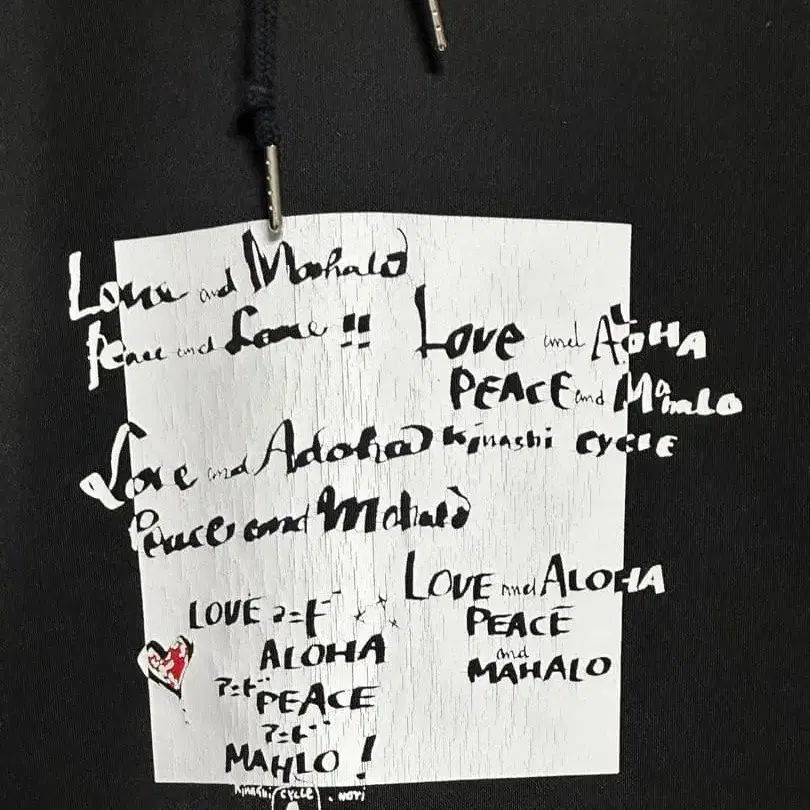 Love and Mahalo
Peace and Love !!
Love and AloHA
PEACE and Mahalo
Love and Adoha
Kinashi CYCLE
Peace and Mahalo
LOVE and ALOHA
PEACE
and
MAHALO
LOVE アンド
ALOHA
アンド
PEACE
アンド
MAHLO !
Kinashi cycle . nori